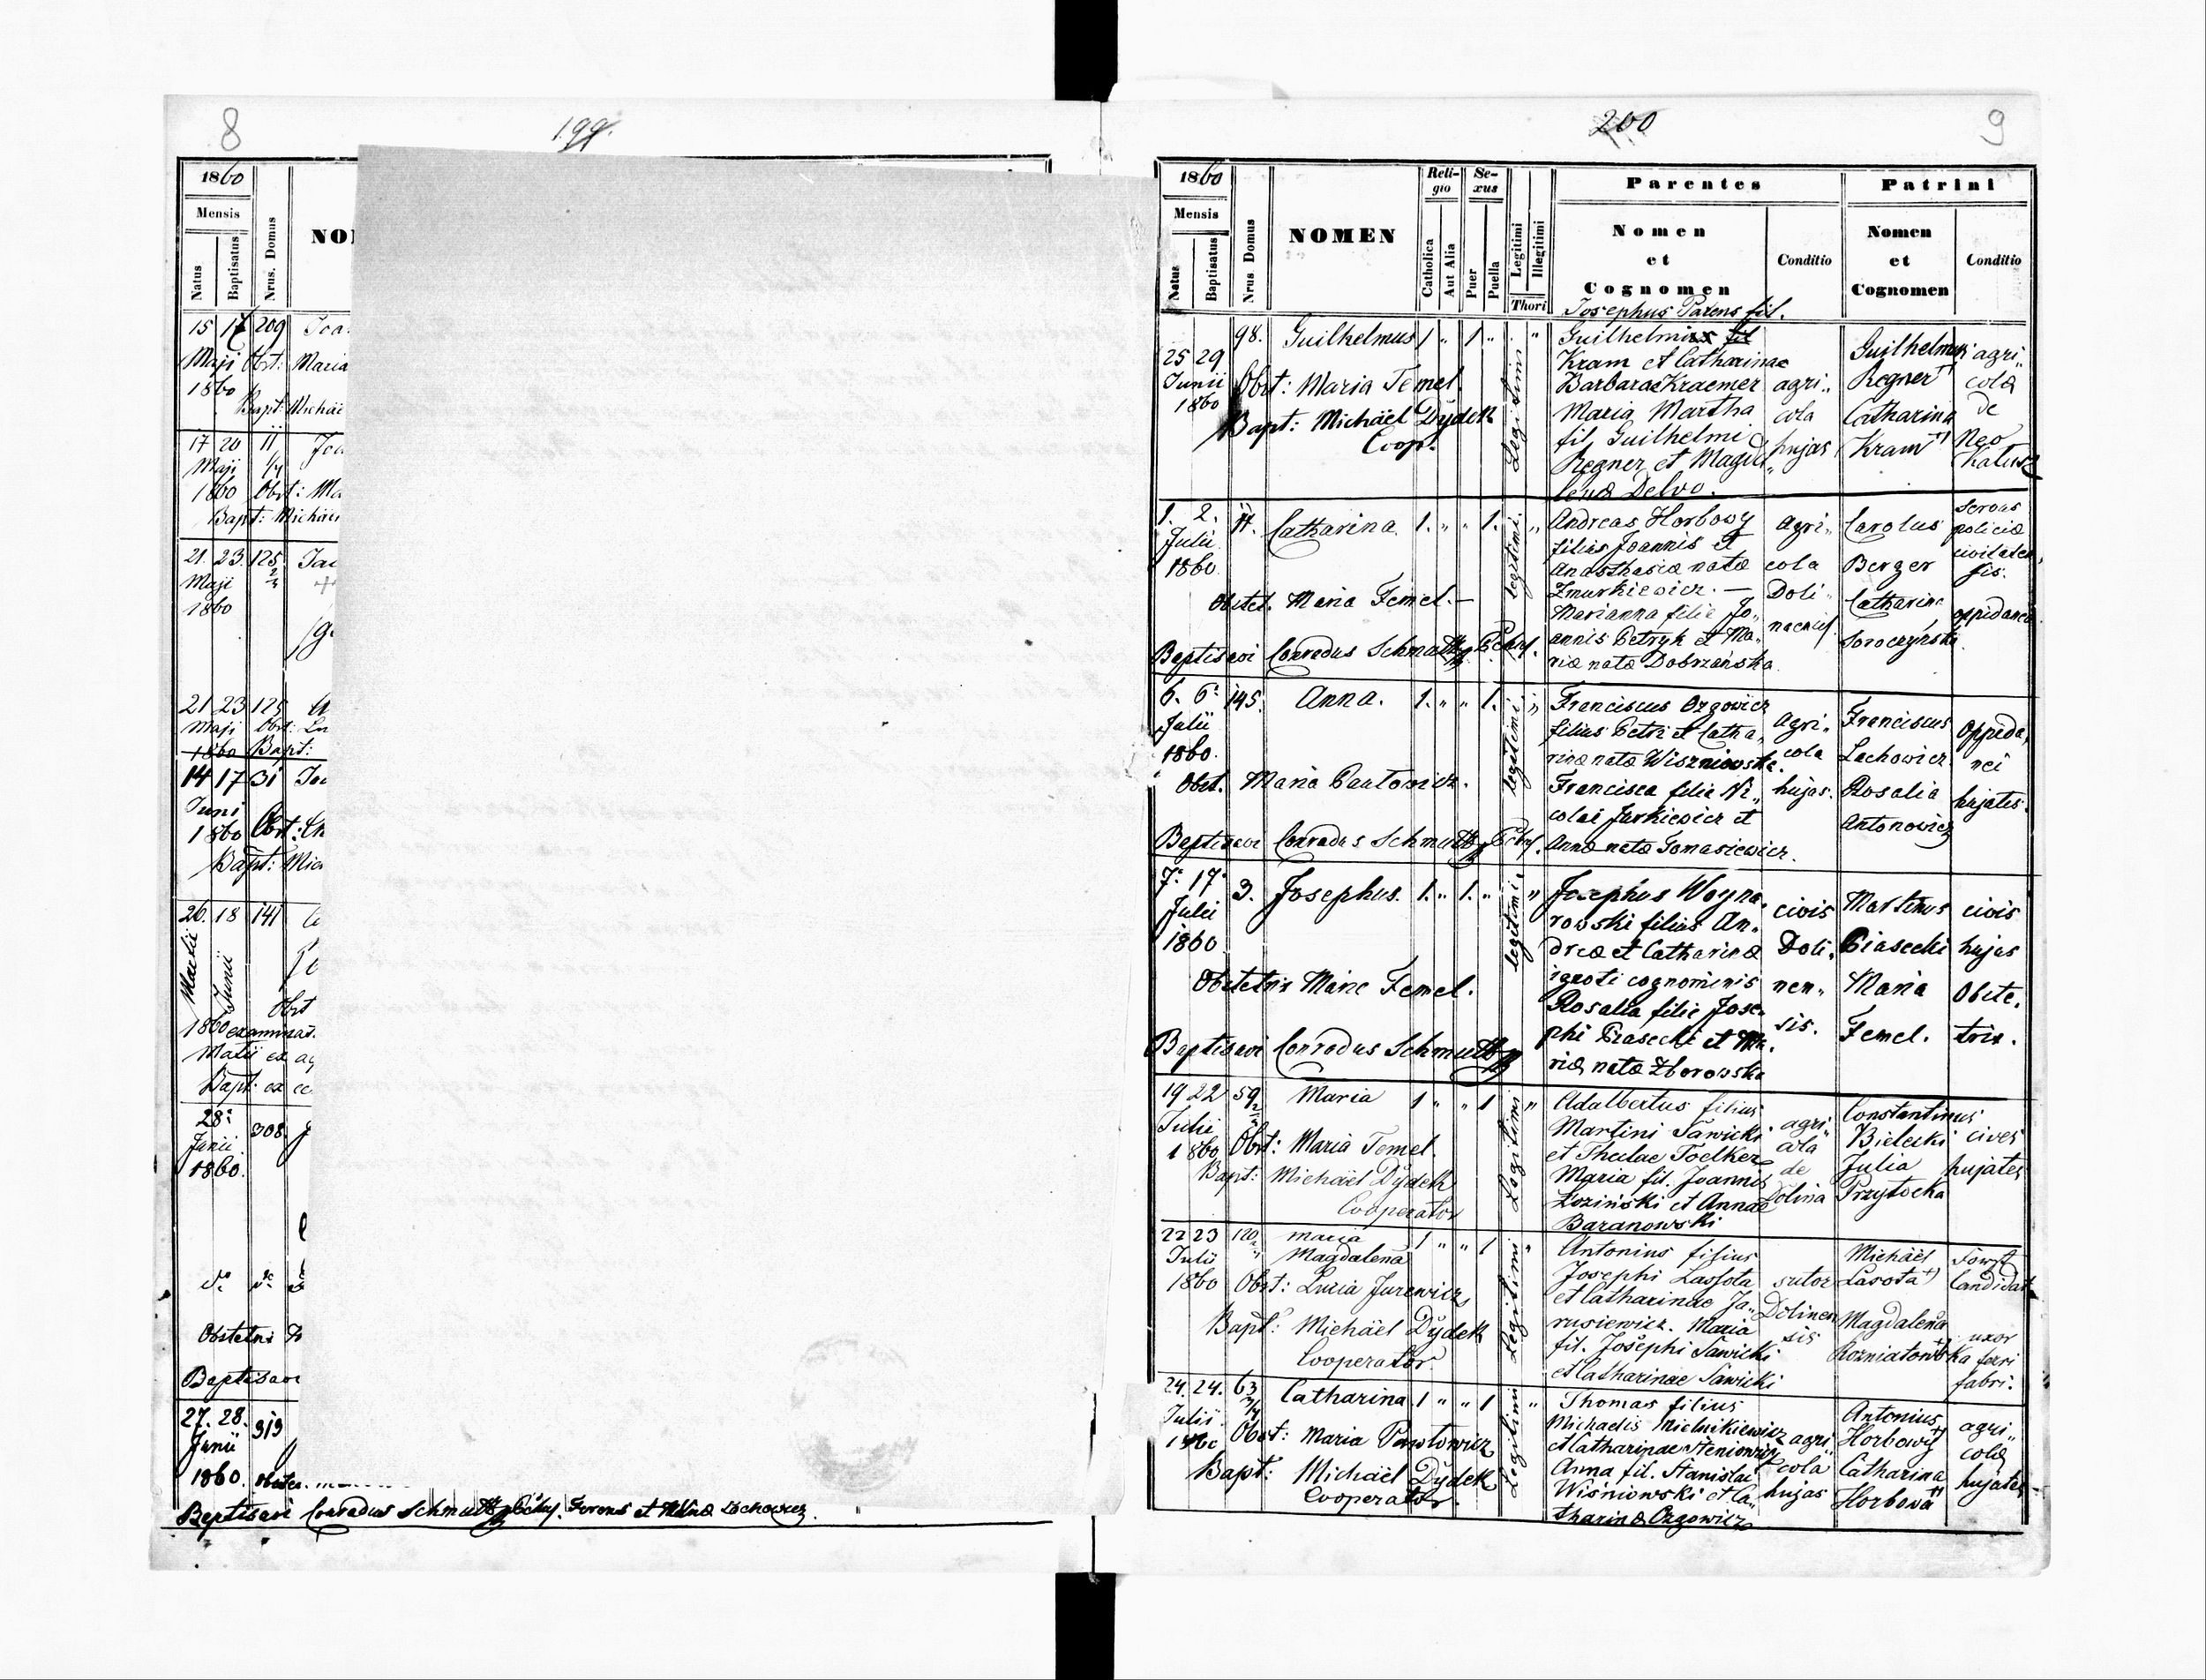 8
199.
1860
Mensis
Natus
Baptisatus
Nrus. Domus
15 17 209
Maji Obst: Maria
1860
Bapt: Michäe
17 20 11
Maji 1/4
1860 Obst: Ma
Bapt: Michäe
21. 23. 125
Maji
1860
21 23 125
Maji Obst:
1860 Bapt:
14 17 31
Juni
1860 Obst:
Bapt: Mic
26. 18 141
Martii Junii
Obst
1860 examinat.
Bapt: ex
28.
Junii 308.
1860.
Obstetrix
Baptisavi
27. 28. 313
Junii
1860.
Baptisavi Conradus Schmutz
200
9
1860
Mensis
Natus
Baptisatus
Nrus. Domus
NOMEN
Reli-
gio
Catholica
Aut Alia
Se-
xus
Puer
Puella
Legitimi
Illegitimi
Thori
Parentes
Nomen
et
Cognomen
Conditio
Patrini
Nomen
et
Cognomen
Conditio
25 29
Junii
1860
98. Guilhelmus 1 " 1 " "
Obst: Maria Temel
Bapt: Michäel Dydek
Coop.
Legitimi
Josephus Parens fil.
Guilhelmi
Kram et Catharinae
Barbarae Kraemer
Maria Martha
fil. Guilhelmi
Regner et Magda
lena Delvo.
agri
cola
hujas
Guilhelmus
Regner +)
Catharina
Kram +)
agri
colae
de
Neo
Kalusz
1. 2.
Julii
1860.
11. Catharina. 1. " " 1. "
Obstet. Maria Femel. —
Baptisavi Conradus Schmutz
legitimi.
Andreas Horbowy
filius Joannis et
Anasthasiae natae
Zmurkiewicz. —
Marianna filia Jo
annis Petryk et Ma
riae natae Dobrzańska.
Agri
cola
Doli
Carolus
Berger
Catharina
Soroczyńska.
policiae
6. 6.
Julii
1860.
145. Anna. 1. " " 1. "
Obst. Maria Pawłowicz.
Baptisavi Conradus Schmutz
legitimi
Franciscus Ozgowicz
filius Petri et Catha
rinae natae Wiszniowska.
Francisca filia Ni
colai Jurkiewicz et
Annae natae Tomasiewicz.
Agri
cola
hujas.
Franciscus
Lachowicz
Rosalia
Antonowicz
Oppida
nei
hujates.
7. 17.
Julii
1860
3. Josephus. 1. " 1. " "
Obstetrix Maria Femel.
Baptisavi Conradus Schmutz
legitimi
Josephus Woyna
rowski filius An
dreae et Catharinae
ignoti cognominis
Rosalia filia Jose
phi Piasecki et Ma
riae natae Zborowska
civis
Doli
nen
sis.
Martinus
Piasecki
Maria
Femel.
civis
hujas
Obste
trix.
19 22
Julii
1860
59 Maria 1 " " 1 "
Obst: Maria Temel
Bapt: Michäel Dydek
Cooperator
Legitimi
Adalbertus filius
Martini Sawicki
et Theclae Toelker
Maria fil. Joannis
Łoziński et Annae
Baranowski
agri
cola
de
Dolina
Constantinus
Bielecki
Julia
Przytocka
cives
hujates
22 23
Julii
1860
120 Maria 1 " " 1 "
Magdalena
Obst: Lucia Jurewicz
Bapt: Michäel Dydek
Cooperator
Legitimi
Antonius filius
Josephi Lassota
et Catharinae Ja
rusiewicz. Maria
fil. Josephi Sawicki
et Catharinae Sawicki
sutor
Dolinen
sis
Michäel
Lasota +)
Magdalena
Candidat
uxor
ferri
fabri.
24. 24.
Julii
1860
63 Catharina 1 " " 1 "
Obst: Maria Pawłowicz
Bapt: Michäel Dydek
Cooperator.
Legitimi
Thomas filius
Michaelis Mielnikiewicz
et Catharinae
Anna fil. Stanislai
Wiśniowski et Ca
tharinae Ozgowicz
agri
cola
hujas
Antonius
Horbowy
Catharina
Horbowa
agri
colae
hujates